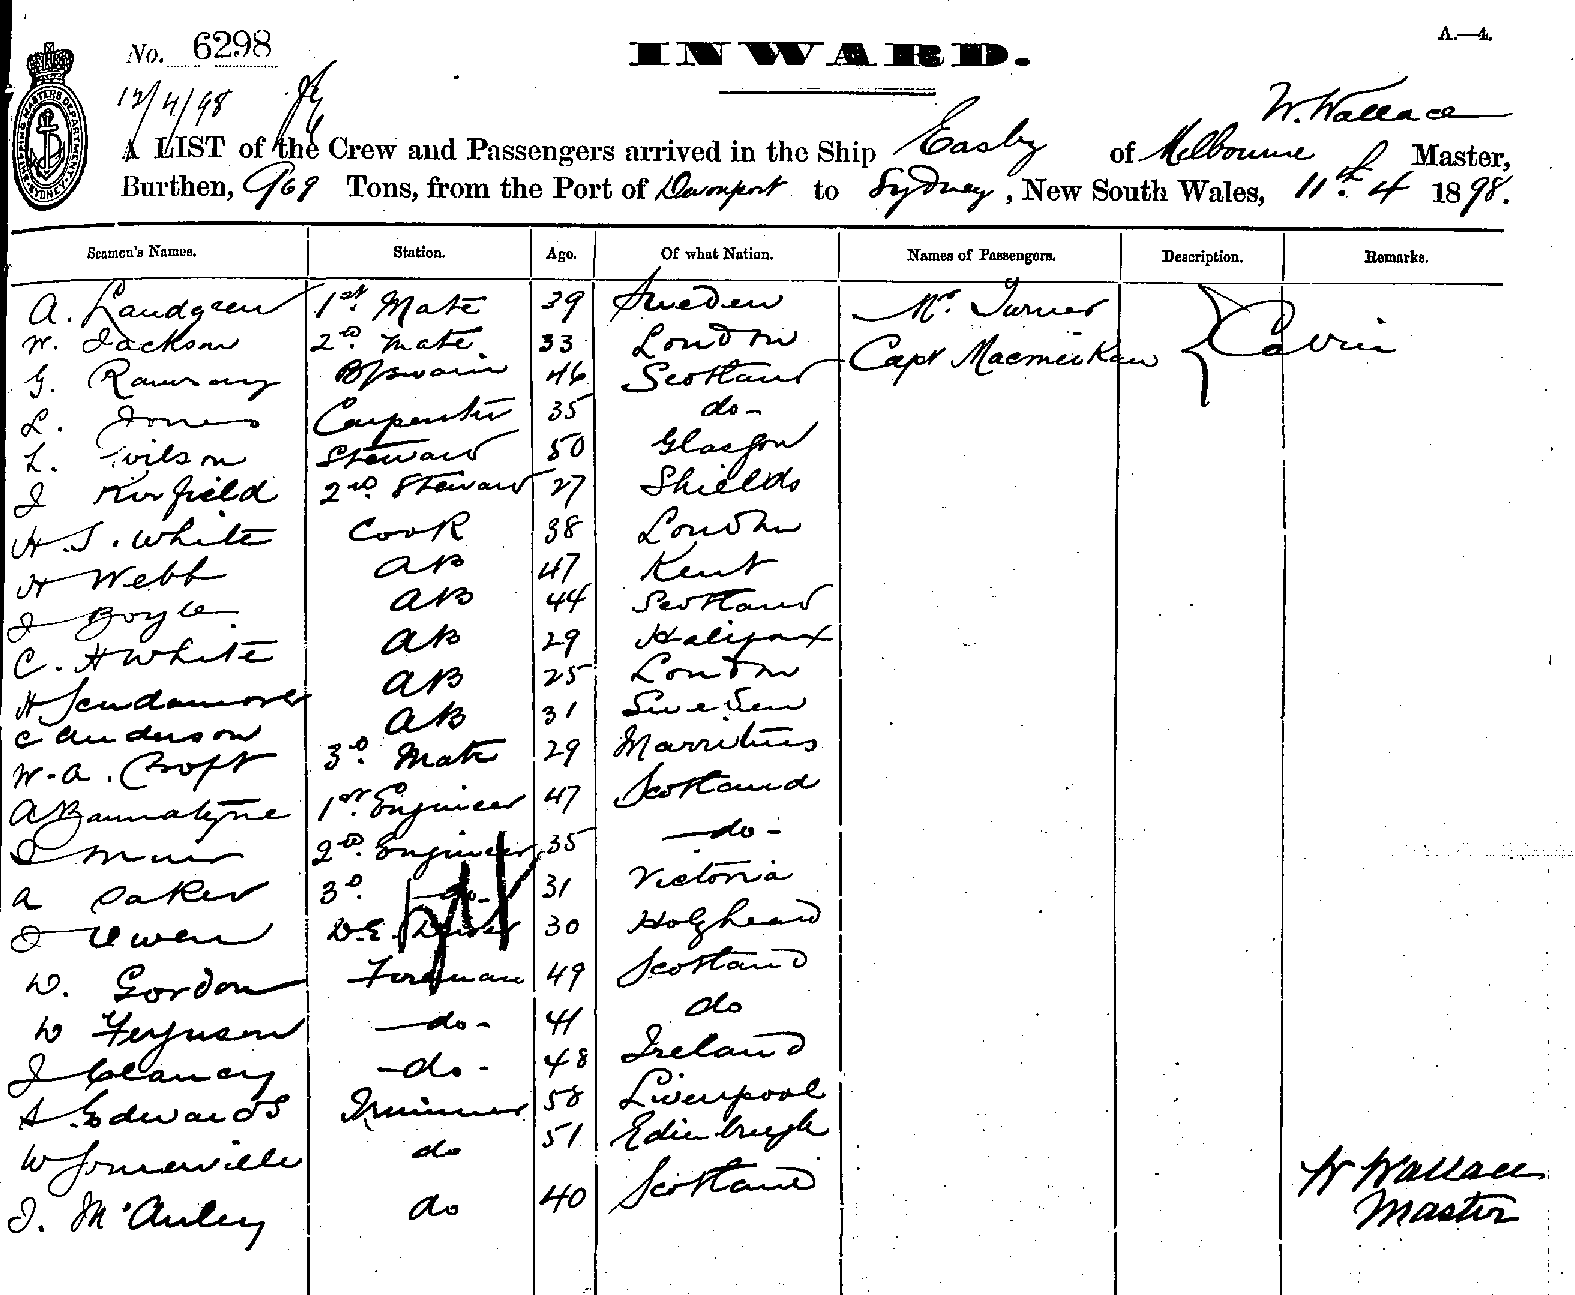 No. 6298
INWARD.
A.—4.
12/4/98
W. Wallace
A LIST of the Crew and Passengers arrived in the Ship Easby of Melbourne Master,
Burthen, 969 Tons, from the Port of Devonport to Sydney, New South Wales, 11th 4 1898.
Seamen's Names. Station. Age. Of what Nation. Names of Passengers. Description. Remarks.
A. Landgren 1st Mate 39 Sweden Mr Turner Cabin
W. Jackson 2nd Mate 33 London Capt
G. Ramsay 46 Scotland
L. Jones Carpenter 35 do-
L. Wilson Steward 50 Glasgow
J Kirfield 2nd Steward 27 Shields
H. J. White Cook 38 London
H Webb AB 47 Kent
J Boyle AB 44 Scotland
C. H White AB 29 Halifax
H Scudamore AB 25 London
C Anderson AB 31 Sweden
W. A. Croft 3rd Mate 29 Marritius
A Bannatyne 1st Engineer 47 Scotland
J Muir 2nd Engineer 35 -do-
A Oaker 3rd -do- 31 Victoria
J Owen 30 Holyhead
D. Gordon Fireman 49 Scotland
D Ferguson -do- 41 do
J Clancy -do- 48 Ireland
A. Edwards Trimmer 58 Liverpool
W Somerville do 51 Edinburgh
J. McAuley do 40 Scotland
W Wallace
Master